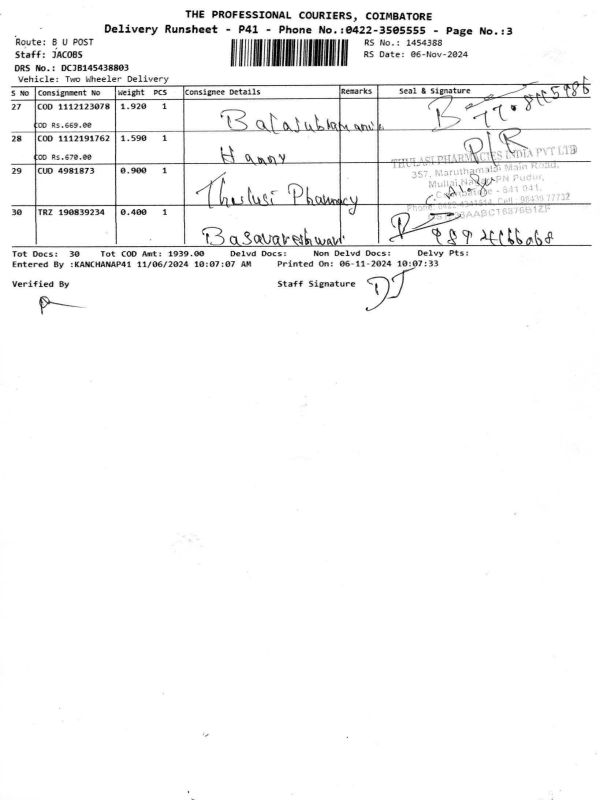 THE PROFESSIONAL COURIERS, COIMBATORE
Delivery Runsheet - P41 - Phone No.:0422-3505555 - Page No.:3
Route: B U POST
RS No.: 1454388
Staff: JACOBS
RS Date: 06-Nov-2024
DRS No.: DCJB145438803
Vehicle: Two Wheeler Delivery
S No Consignment No Weight PCS Consignee Details Remarks Seal & Signature
27 COD 1112123078 1.920 1
COD Rs.669.00 Balasubramani
28 COD 1112191762 1.590 1
COD Rs.670.00 Hanny
THULASI PHARMACIES INDIA PVT LTD
29 CUD 4981873 0.900 1
357, Maruthamalai Main Road,
Mullai Nagar, PN Pudur,
Coimbatore - 641 041.
Thulasi Pharmacy
30 TRZ 190839234 0.400 1
Basavareshwari
Tot Docs: 30 Tot COD Amt: 1939.00 Delvd Docs: Non Delvd Docs: Delvy Pts:
Entered By :KANCHANAP41 11/06/2024 10:07:07 AM Printed On: 06-11-2024 10:07:33
Verified By Staff Signature